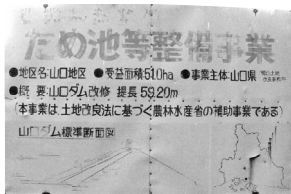 ため池等整備事業
●地区名:山口地区 ●受益面積51.0ha ●事業主体:山口県
●概 要:山口ダム改修 提長59.20m
(本事業は土地改良法に基づく農林水産省の補助事業である)
山口ダム標準断面図